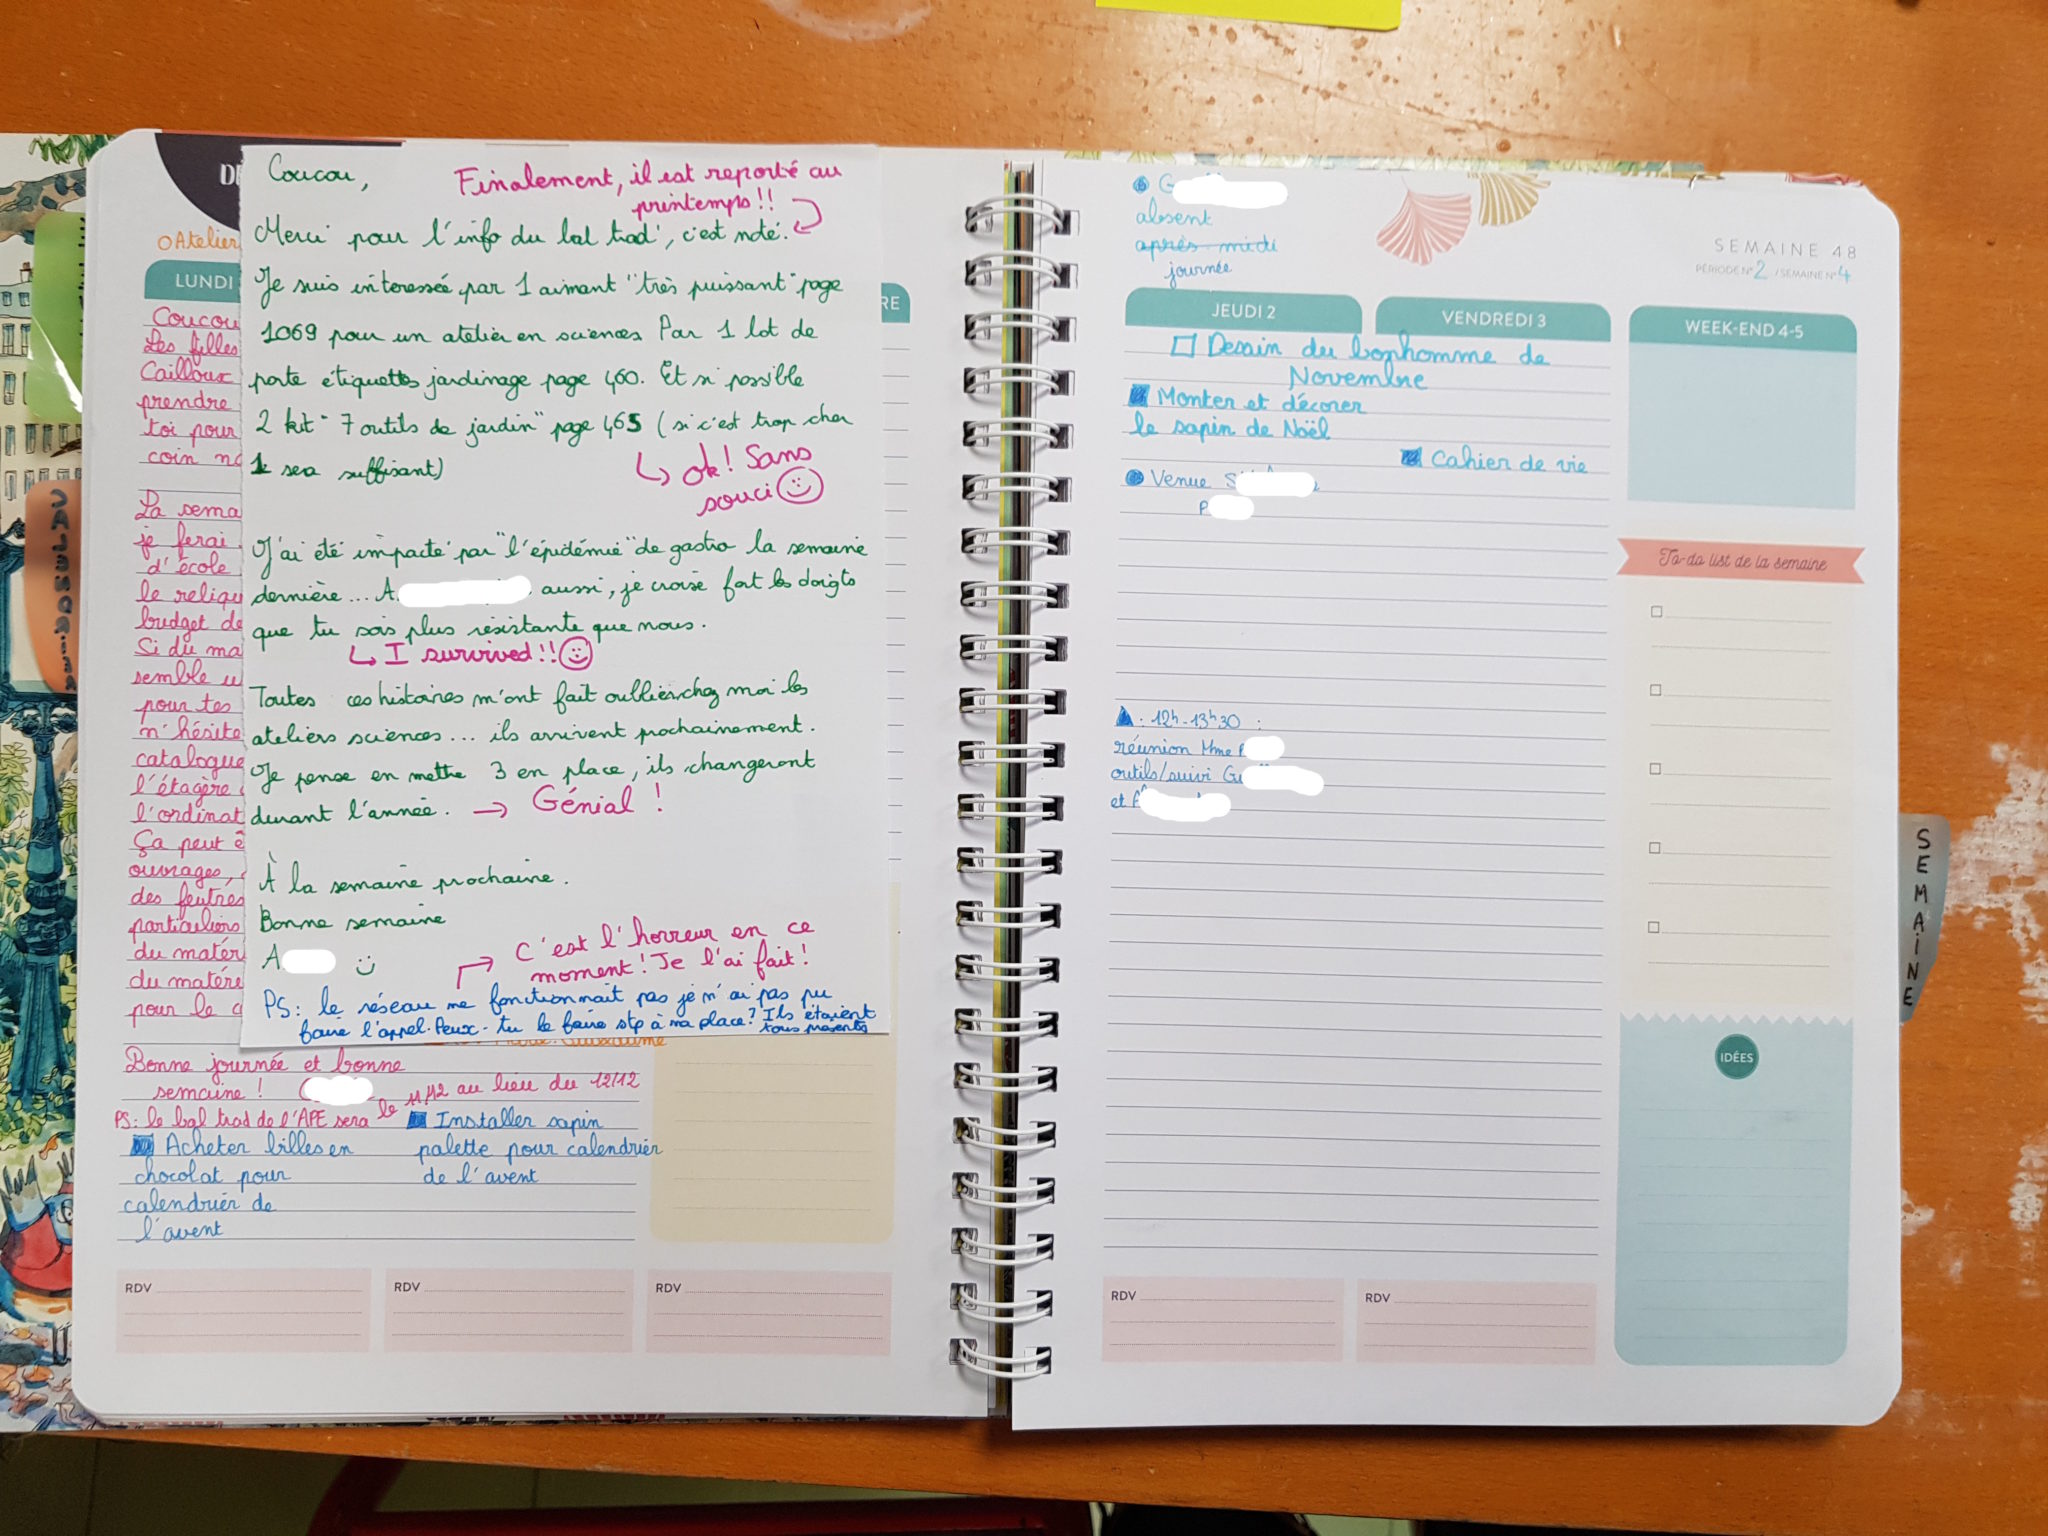 DÉ
Coucou,
Finalement, il est reporté au
printemps !!
Merci pour l'info du bal trad', c'est noté.
Je suis intéressée par 1 aimant "très puissant" page
1069 pour un atelier en sciences Par 1 lot de
porte étiquettes jardinage page 460. Et si possible
2 kit "7 outils de jardin" page 465 (si c'est trop cher
1 sera suffisant)
ok! Sans
souci
J'ai été impacté par "l'épidémie" de gastro la semaine
dernière... A. aussi, je croise fort les doigts
que tu sois plus résistante que nous.
I survived!!
Toutes ces histoires m'ont fait oublier chez moi les
ateliers sciences... ils arrivent prochainement.
Je pense en mettre 3 en place, ils changeront
durant l'année. → Génial !
À la semaine prochaine.
Bonne semaine
A.
C'est l'horreur en ce
moment! Je l'ai fait!
PS: le réseau ne fonctionnait pas je n'ai pas pu
faire l'appel. Peux-tu le faire stp à ma place? Ils étaient
tous présents
O Atelier
LUNDI
RE
Coucou
Les filles
Cailloux
prendre
toi pour
coin
La sema
je ferai
d'école
le reliqu
budget de
Si du ma
semble u
pour tes
n'hésite
catalogue
l'étagère
l'ordinat
Ça peut ê
ouvrages,
des feutres
particuliers
du matér
du matére
pour le c
Bonne journée et bonne
semaine !
PS: le bal trad de l'APE sera le 11/12 au lieu du 12/12
Acheter billes en
chocolat pour
calendrier de
l'avent
Installer sapin
palette pour calendrier
de l'avent
RDV
RDV
RDV
G
absent
après-midi
journée
SEMAINE 48
PÉRIODE N° 2 / SEMAINE N° 4
JEUDI 2
VENDREDI 3
WEEK-END 4-5
Dessin du bonhomme de
Novembre
Monter et décorer
le sapin de Noël
Cahier de vie
Venue S
P
12h-13h30 :
réunion Mme P
outils/suivi Gu
et
To-do list de la semaine
IDÉES
RDV
RDV
SEMAINE